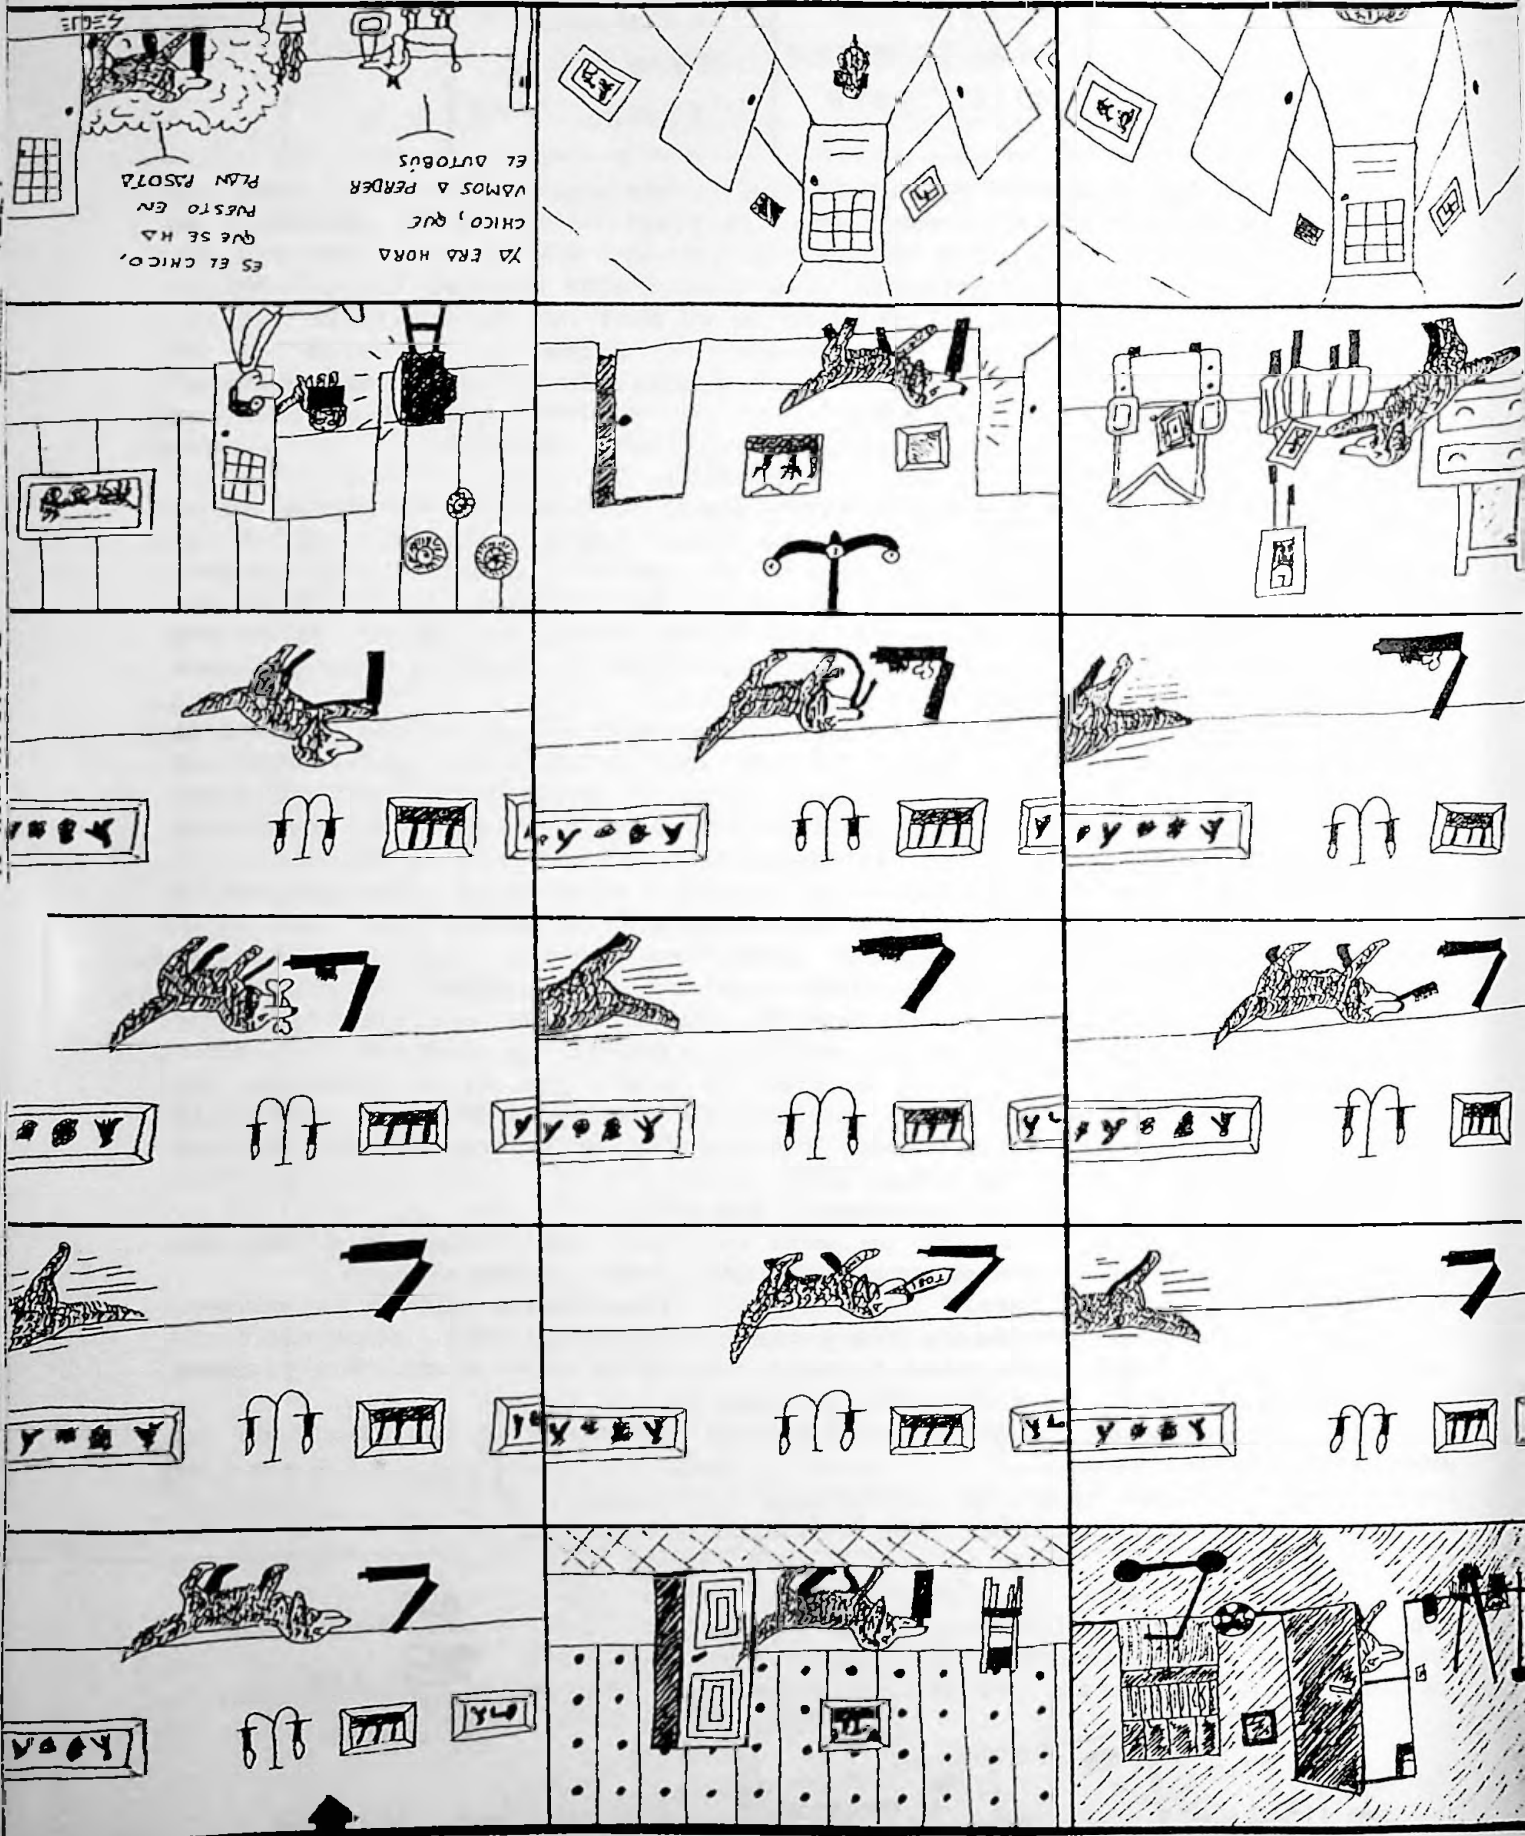 TOBI
YA ERA HORA
CHICO, QUE
VAMOS A PERDER
EL AUTOBÚS
ES EL CHICO,
QUE SE HA
PUESTO EN
PLAN PASOTA
SEGUE